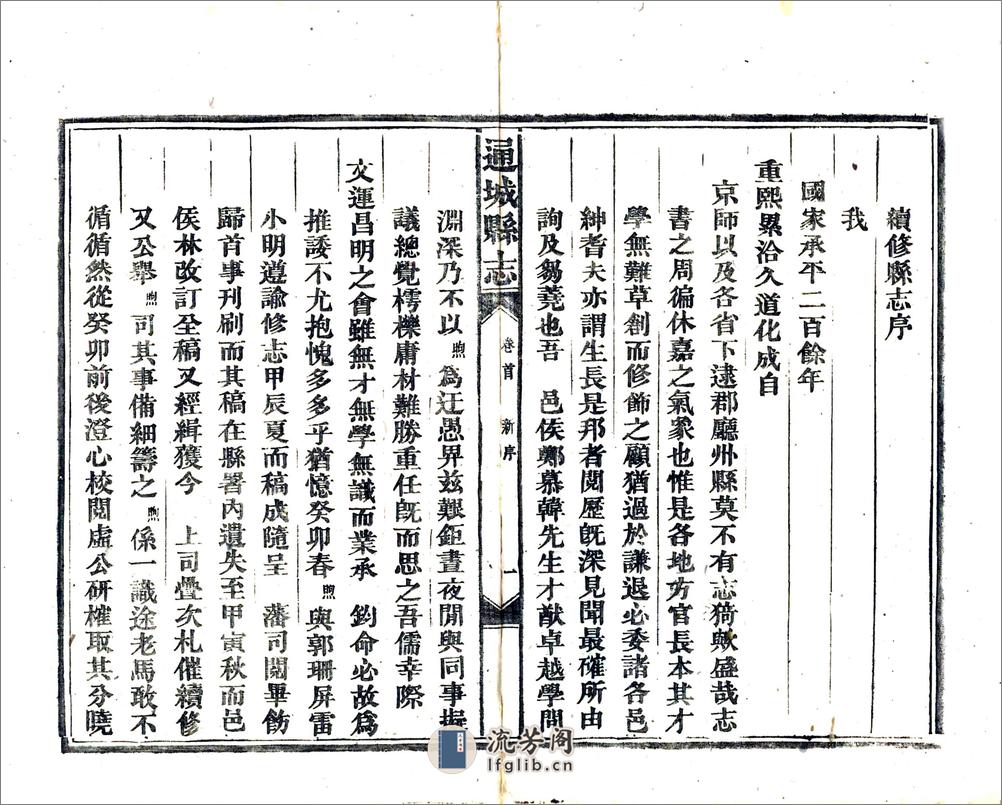 續修縣志序
我
國家承平二百餘年
重熙累洽久道化成自
京師以及各省下逮郡廳州縣莫不有志猗歟盛哉志
書之周徧休嘉之氣象也惟是各地方官長本其才
學無難草創而修飾之顧猶過於謙退必委諸各邑
紳耆夫亦謂生長是邦者閱歷旣深見聞最確所由
詢及芻蕘也吾 邑侯鄭慕韓先生才猷卓越學問
通城縣志
卷首 新序 一
淵深乃不以煦為迂愚畀茲艱鉅晝夜閒與同事擬
議總覺樗櫟庸材難勝重任旣而思之吾儒幸際
文運昌明之會雖無才無學無識而業承 鈞命必故為
推諉不尤抱愧多多乎猶憶癸卯春煦與郭珊屏雷
小明遵諭修志甲辰夏而稿成隨呈 藩司閱畢飭
歸首事刊刷而其稿在縣署內遺失至甲寅秋而邑
侯林改訂全稿又經緝獲今 上司疊次札催續修
又公舉煦司其事備細籌之煦係一識途老馬敢不
循循然從癸卯前後澄心校閱虛公研榷取其分曉
流芳阁
lfglib.cn